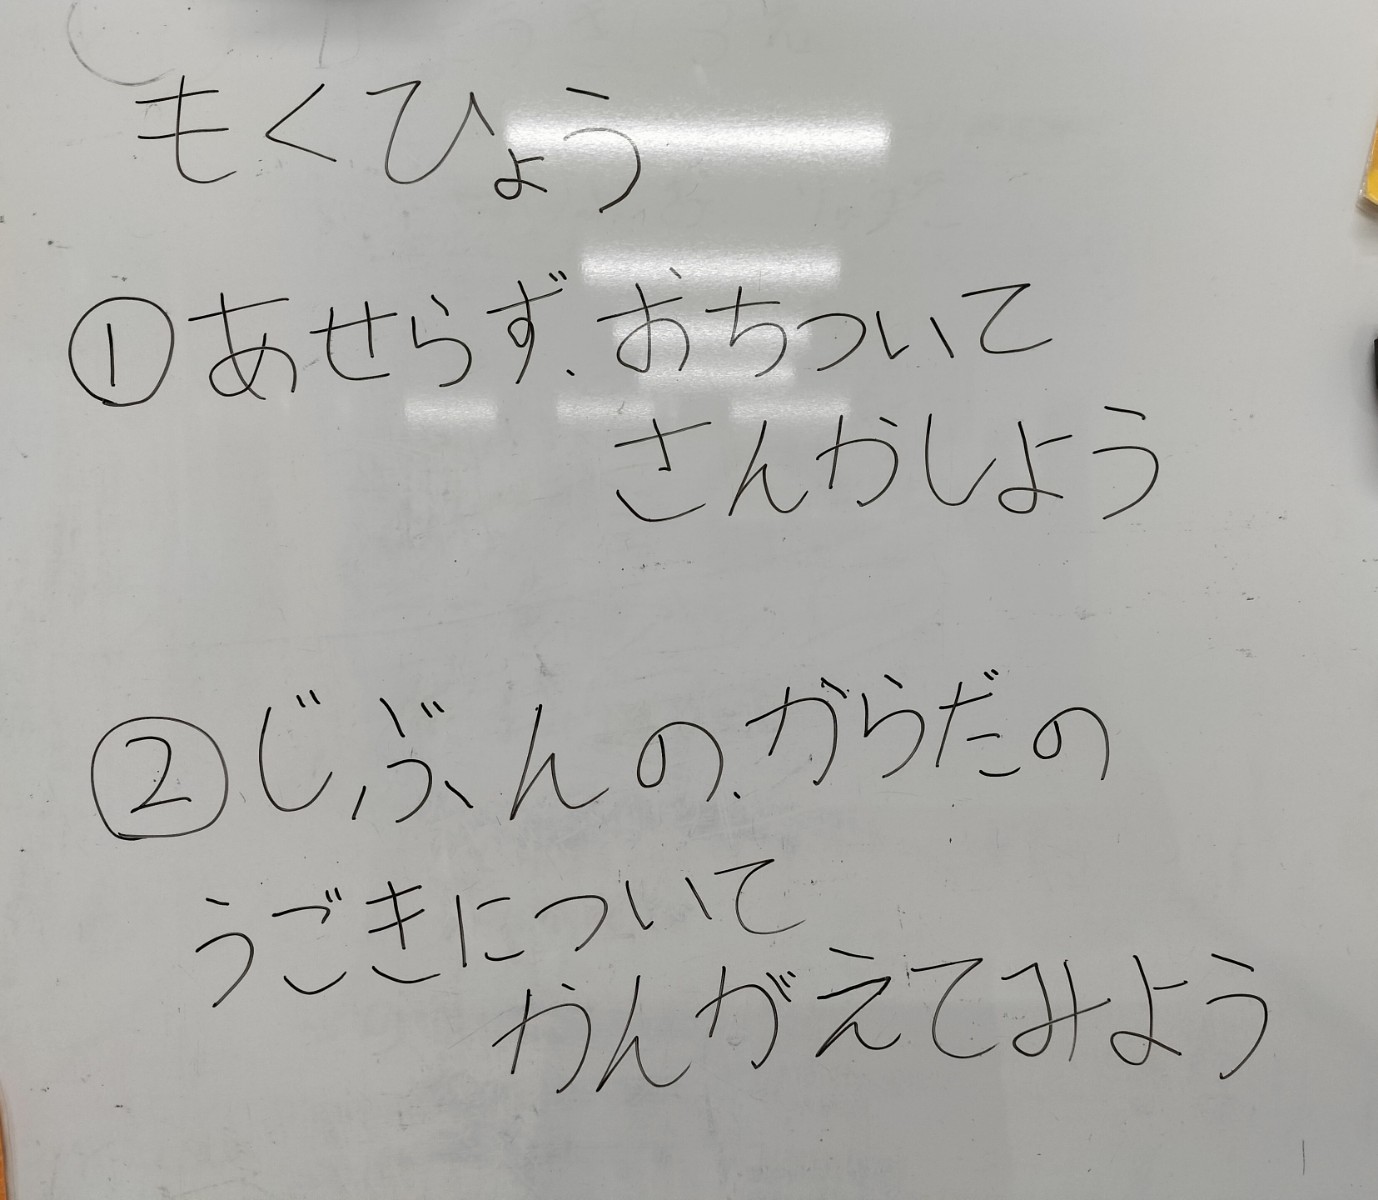 もくひょう
①あせらず、おちついて
さんかしよう
②じぶんの、からだの
うごきについて
かんがえてみよう